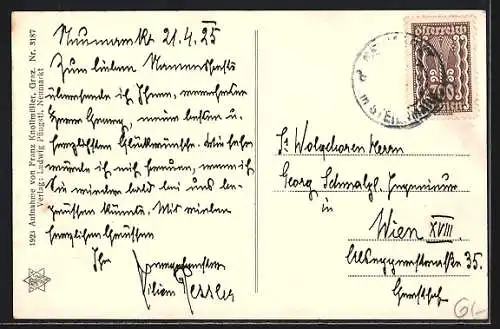 1923 Aufnahme von Franz Knollmüller, Graz. Nr. 3187
Verlag: Ludwig Pänganl, Neumarkt
Neumarkt 21.4.25
Zum lieben Namensfeste
übersende ich Ihnen, verehrter
Herr Georg, meine besten u.
herzlichsten Glückwünsche. Wie sehr
würde ich mich freuen, wenn ich
Sie wieder bald bei uns be-
grüssen könnte. Mit vielen
herzlichen Grüssen
Ihr
Kilian Ressler
österreich
in STEIERMARK
Sr Wolgeboren Herrn
Georg Schmalzl, Ingenieur
in
Wien XVIII
Alseggerstraße 35.
Gersthof
6/-